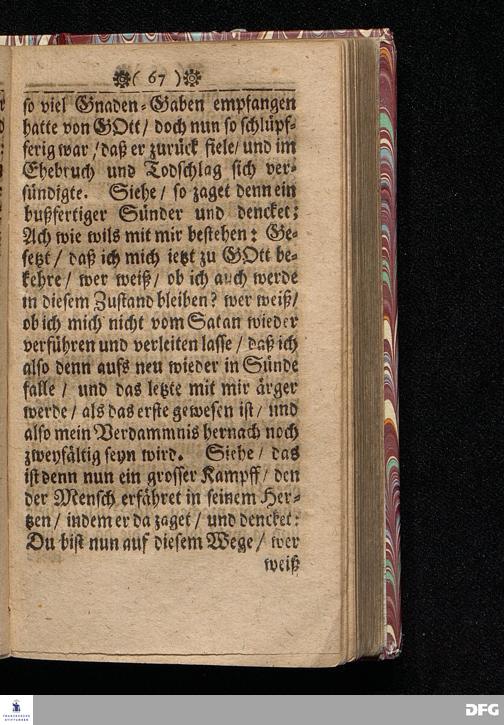 ( 67 )
so viel Gnaden-Gaben empfangen
hatte von GOtt / doch nun so schlüpf-
ferig war / daß er zurück fiele / und im
Ehebruch und Todschlag sich ver-
sündigte. Siehe / so zaget denn ein
bußfertiger Sünder und dencket;
Ach wie wils mit mir bestehen: Ge-
setzt / daß ich mich ietzt zu GOtt be-
kehre / wer weiß / ob ich auch werde
in diesem Zustand bleiben? wer weiß /
ob ich mich nicht vom Satan wieder
verführen und verleiten lasse / daß ich
also denn aufs neu wieder in Sünde
falle / und das letzte mit mir ärger
werde / als das erste gewesen ist / und
also mein Verdammnis hernach noch
zweyfältig seyn wird. Siehe / das
ist denn nun ein grosser Kampff / den
der Mensch erfähret in seinem Her-
tzen / indem er da zaget / und dencket:
Du bist nun auf diesem Wege / wer
weiß
FRANCKESCHE STIFTUNGEN
DFG